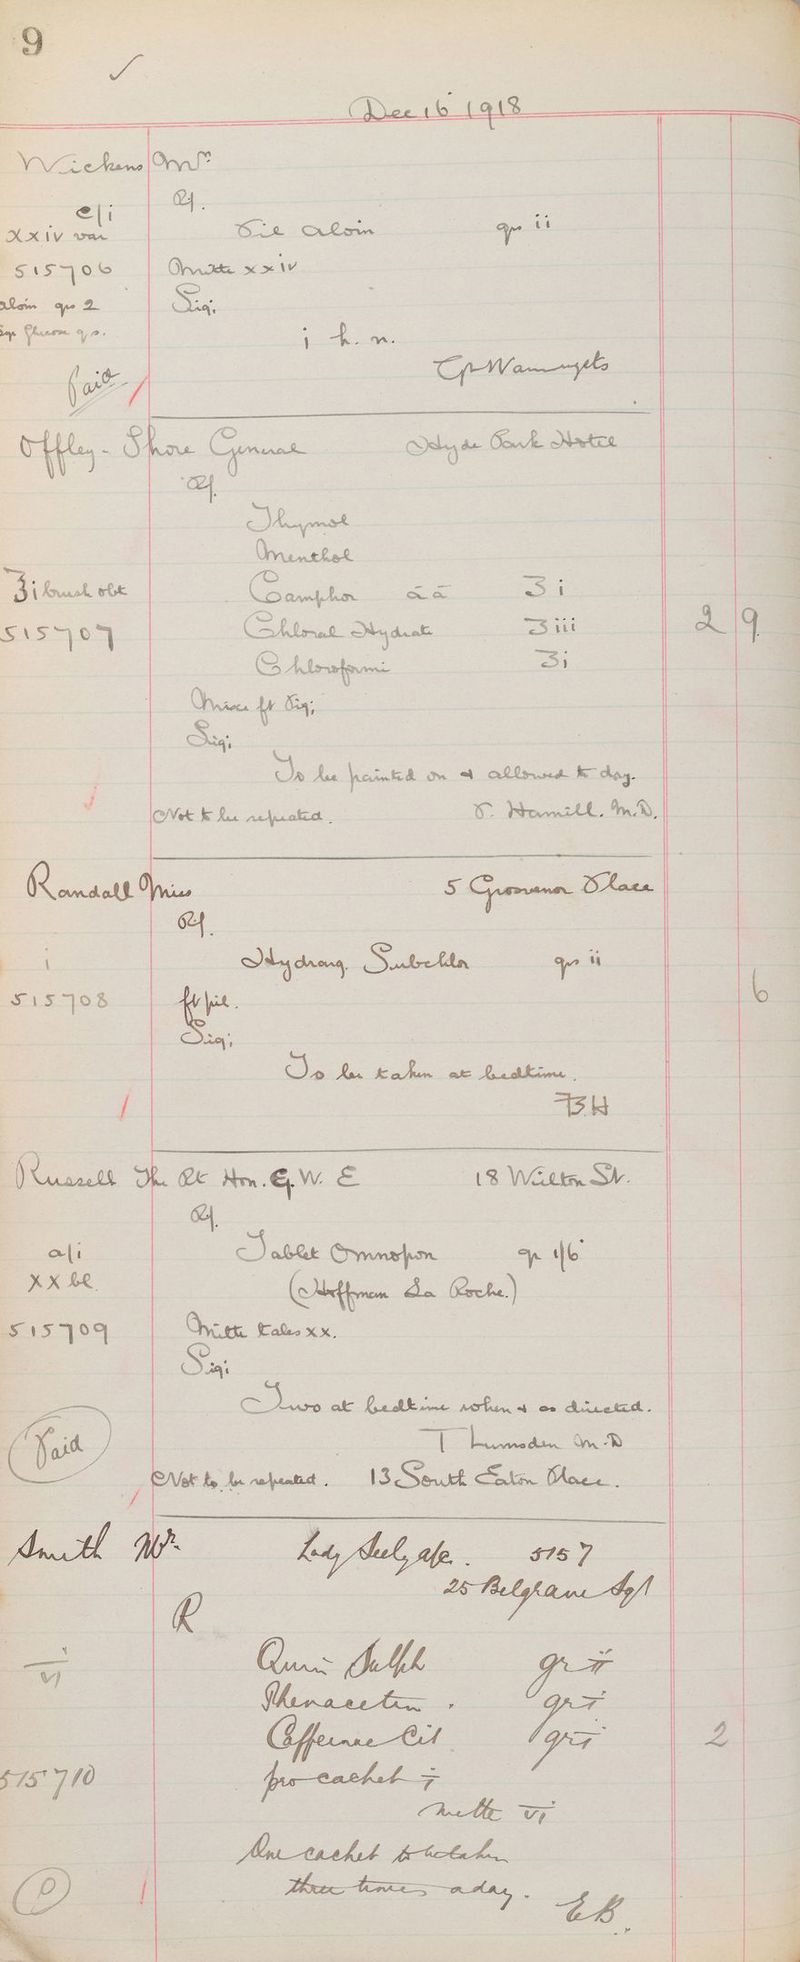 9
Dec 16 1918
Wickens Mrs
Rx.
c/i
Pil Aloin grs ii
xxiv var
515706 Mitte xxiv
Aloin grs 2 Sig;
Glucose q.s.
i h. n.
Paid
Offley-Shore General Hyde Park Hotel
Rx.
Thymol
Menthol
ʒi brush obt Camphor āā ʒi
515707 Chloral Hydrate ʒiii 2 9
Chloroformi ʒi
Misce ft Pig;
Sig;
To be painted on & allowed to dry.
Not to be repeated. P. Hamill. M.D.
Randall Miss 5 Grosvenor Place
Rx.
i Hydrarg. Subchlor grs ii
515708 ft pil. 6
Sig;
To be taken at bedtime.
BH
Russell The Rt Hon. G. W. E 18 Wilton St.
Rx.
a/i Tablet Omnopon gr 1/6
xx bl. (Hoffman La Roche.)
515709 Mitte tales xx.
Sig;
Two at bedtime when & as directed.
Paid T Lumsden M.D
Not to be repeated. 13 South Eaton Place.
Smith Mr. Lady Seely a/c. 5157
25 Belgrave Sq
R
i Quin Sulph gr ii
vi
Phenacetin. gr i
Caffeinae Cit gr i 2
515710 pro cachet i
mitte vi
One cachet to be taken
three times a day.
P EB.